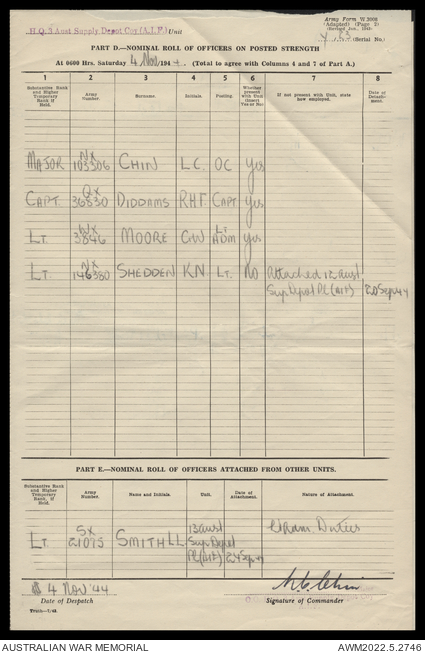 H.Q. 3 Aust Supply Depot Coy (A.I.F.) Unit
Army Form W.3008
(Adapted) (Page 2)
(Serial No.)
PART D.—NOMINAL ROLL OF OFFICERS ON POSTED STRENGTH
At 0600 Hrs. Saturday 4 Nov 1944. (Total to agree with Columns 4 and 7 of Part A.)
1 2 3 4 5 6 7 8
Substantive Rank and Higher Temporary Rank if Held. Army Number. Surname. Initials. Posting. Whether present with Unit (Insert Yes or No) If not present with Unit, state how employed. Date of Detachment.
MAJOR NX 103306 CHIN L.C. OC Yes
CAPT. QX 36830 DIDDAMS RHF CAPT Yes
LT. WX 3846 MOORE GW LT ADM Yes
LT. NX 146380 SHEDDEN KN LT. NO Attached 12 Aust
Sup Depot Pl (AIF) 20 Sep 44
PART E.—NOMINAL ROLL OF OFFICERS ATTACHED FROM OTHER UNITS.
Substantive Rank and Higher Temporary Rank, if Held. Army Number. Name and Initials. Unit. Date of Attachment. Nature of Attachment.
LT. SX 21075 SMITH LL 13 Aust Sup Depot Pl (AIF) Duties
4 Nov '44
Date of Despatch
Signature of Commander
AUSTRALIAN WAR MEMORIAL
AWM2022.5.2746